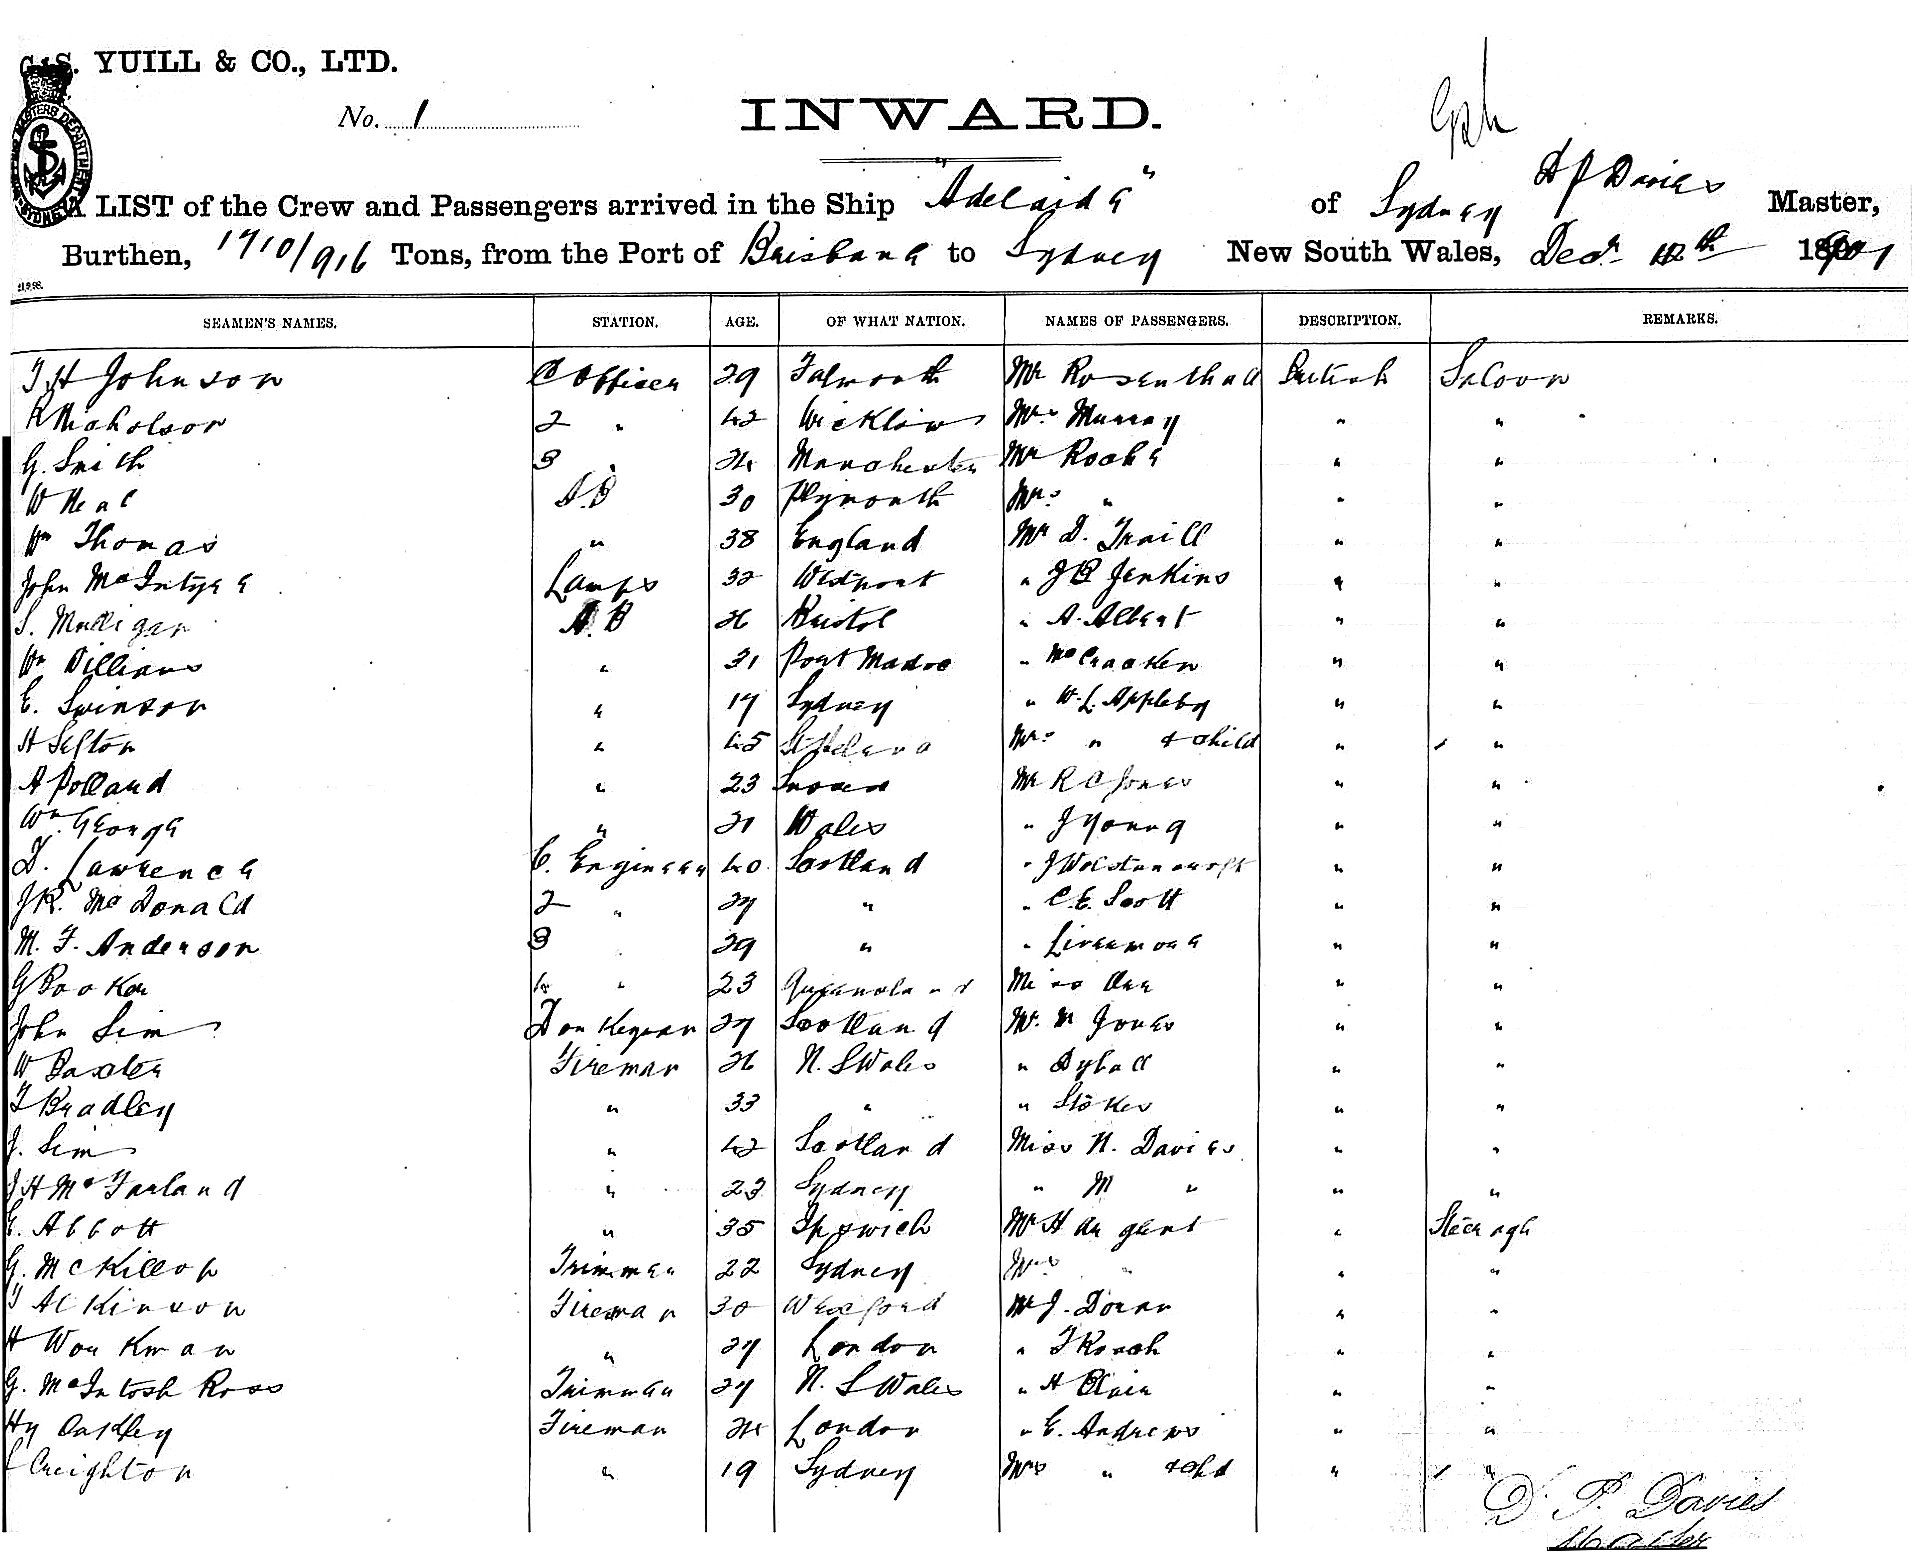 G. S. YUILL & CO., LTD.
No. 1
INWARD.
A LIST of the Crew and Passengers arrived in the Ship "Adelaide" of Sydney D P Davies Master,
Burthen, 1710/916 Tons, from the Port of Brisbane to Sydney New South Wales, Decr 12th 1901
SEAMEN'S NAMES. STATION. AGE. OF WHAT NATION. NAMES OF PASSENGERS. DESCRIPTION. REMARKS.
T H Johnson C Officer 29 Falmouth Mr Rosenthall British Saloon
R Nicholson 2 " 42 Wicklow Mrs Murray " "
G. Smith 3 " 24 Manchester Mr Roche " "
W Neal A.B 30 Plymouth Mrs " " "
Wm Thomas " 38 England Mr D. Traill " "
John McIntyre Lamps 32 Westport " J B Jenkins " "
S. Mulligan A.B 26 Bristol " A. Albert " "
Wm Williams " 31 Port Madoc " McCracken " "
E. Swinson " 17 Sydney " W. L. Appleby " "
H Sefton " 45 St Helena Mrs " & Child " "
A Polland " 23 Mr R C Jones " "
Wm George " 21 Wales " J Young " "
D. Lawrence C. Engineer 40 Scotland " J Wolstencroft " "
J R. McDonald 2 " 27 " " C. E. Scott " "
M. F. Anderson 3 29 " " Livermore " "
G Booker 4 " 23 Queensland Miss Orr " "
John Sim Donkeyman 27 Scotland Mr. N Jones " "
W Baxter Fireman 26 N. S Wales " Dyball " "
T Bradley " 33 " " Stokes " "
J. Sim " 42 Scotland Miss N. Davies " "
J H McFarland " 23 Sydney " M " " "
E. Abbott " 35 Ipswich Mr H Argent " Steerage
G. McKillop Trimmer 22 Sydney Mrs " " "
T Atkinson Fireman 30 Wexford Mr J. Doran " "
H Workman " 27 London " T Roach " "
G. McIntosh Ross Trimmer 27 N. S Wales " H Blair " "
Hy Oakley Fireman 24 London " E. Andrews " "
Creighton " 19 Sydney Mrs " & Chd " "
D. P. Davies
Master